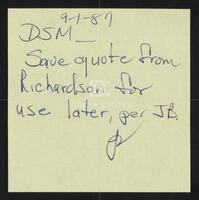 9-1-87
DSM_
Save quote from
Richardson for
use later, per JB.